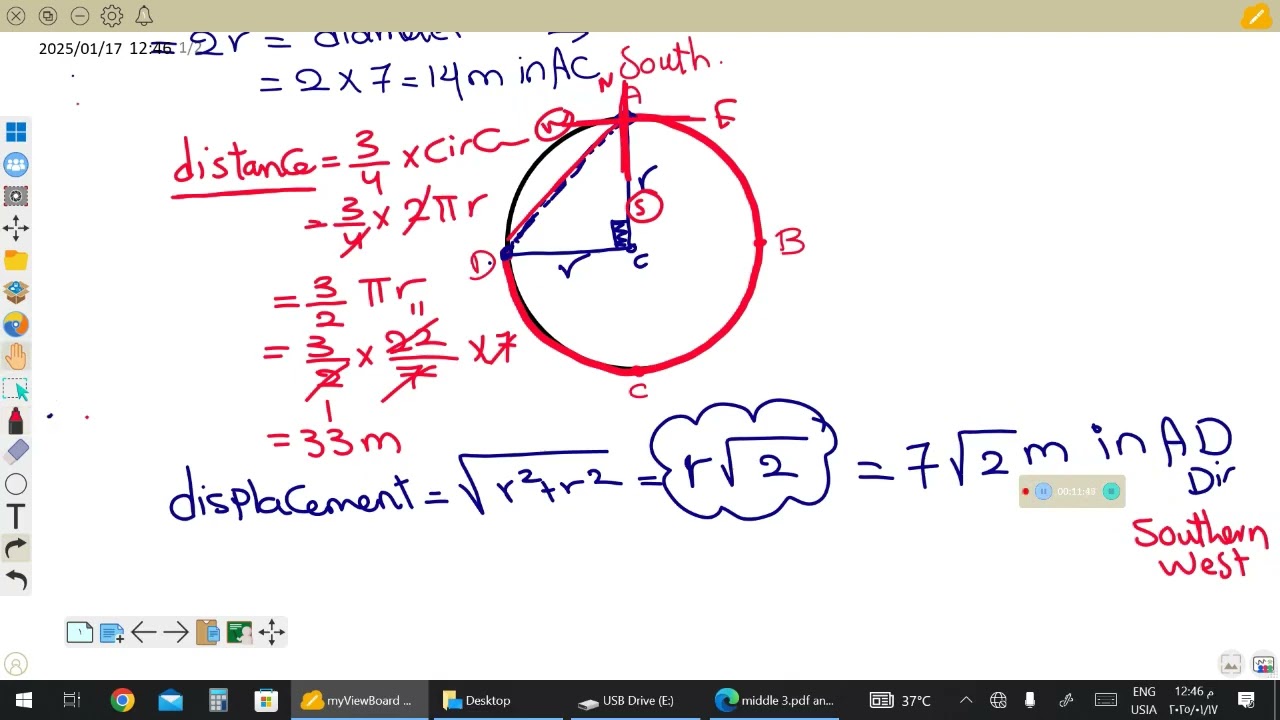 2025/01/17 12:46 1/2
= 2r = diameter
= 2 x 7 = 14m in AC
South.
N
A
W
E
distance = 3/4 x circ
= 3/4 x 2πr
r
S
D
r
C
B
= 3/2 πr
11
= 3/2 x 22/7 x 7
1
C
= 33m
displacement = √r²+r² = r√2 = 7√2 m in AD
Dir
00:11:49
Southern
West
T
myViewBoard ...
Desktop
USB Drive (E:)
middle 3.pdf an...
37°C
ENG
USIA
12:46 م
٢٠٢٥/٠١/١٧